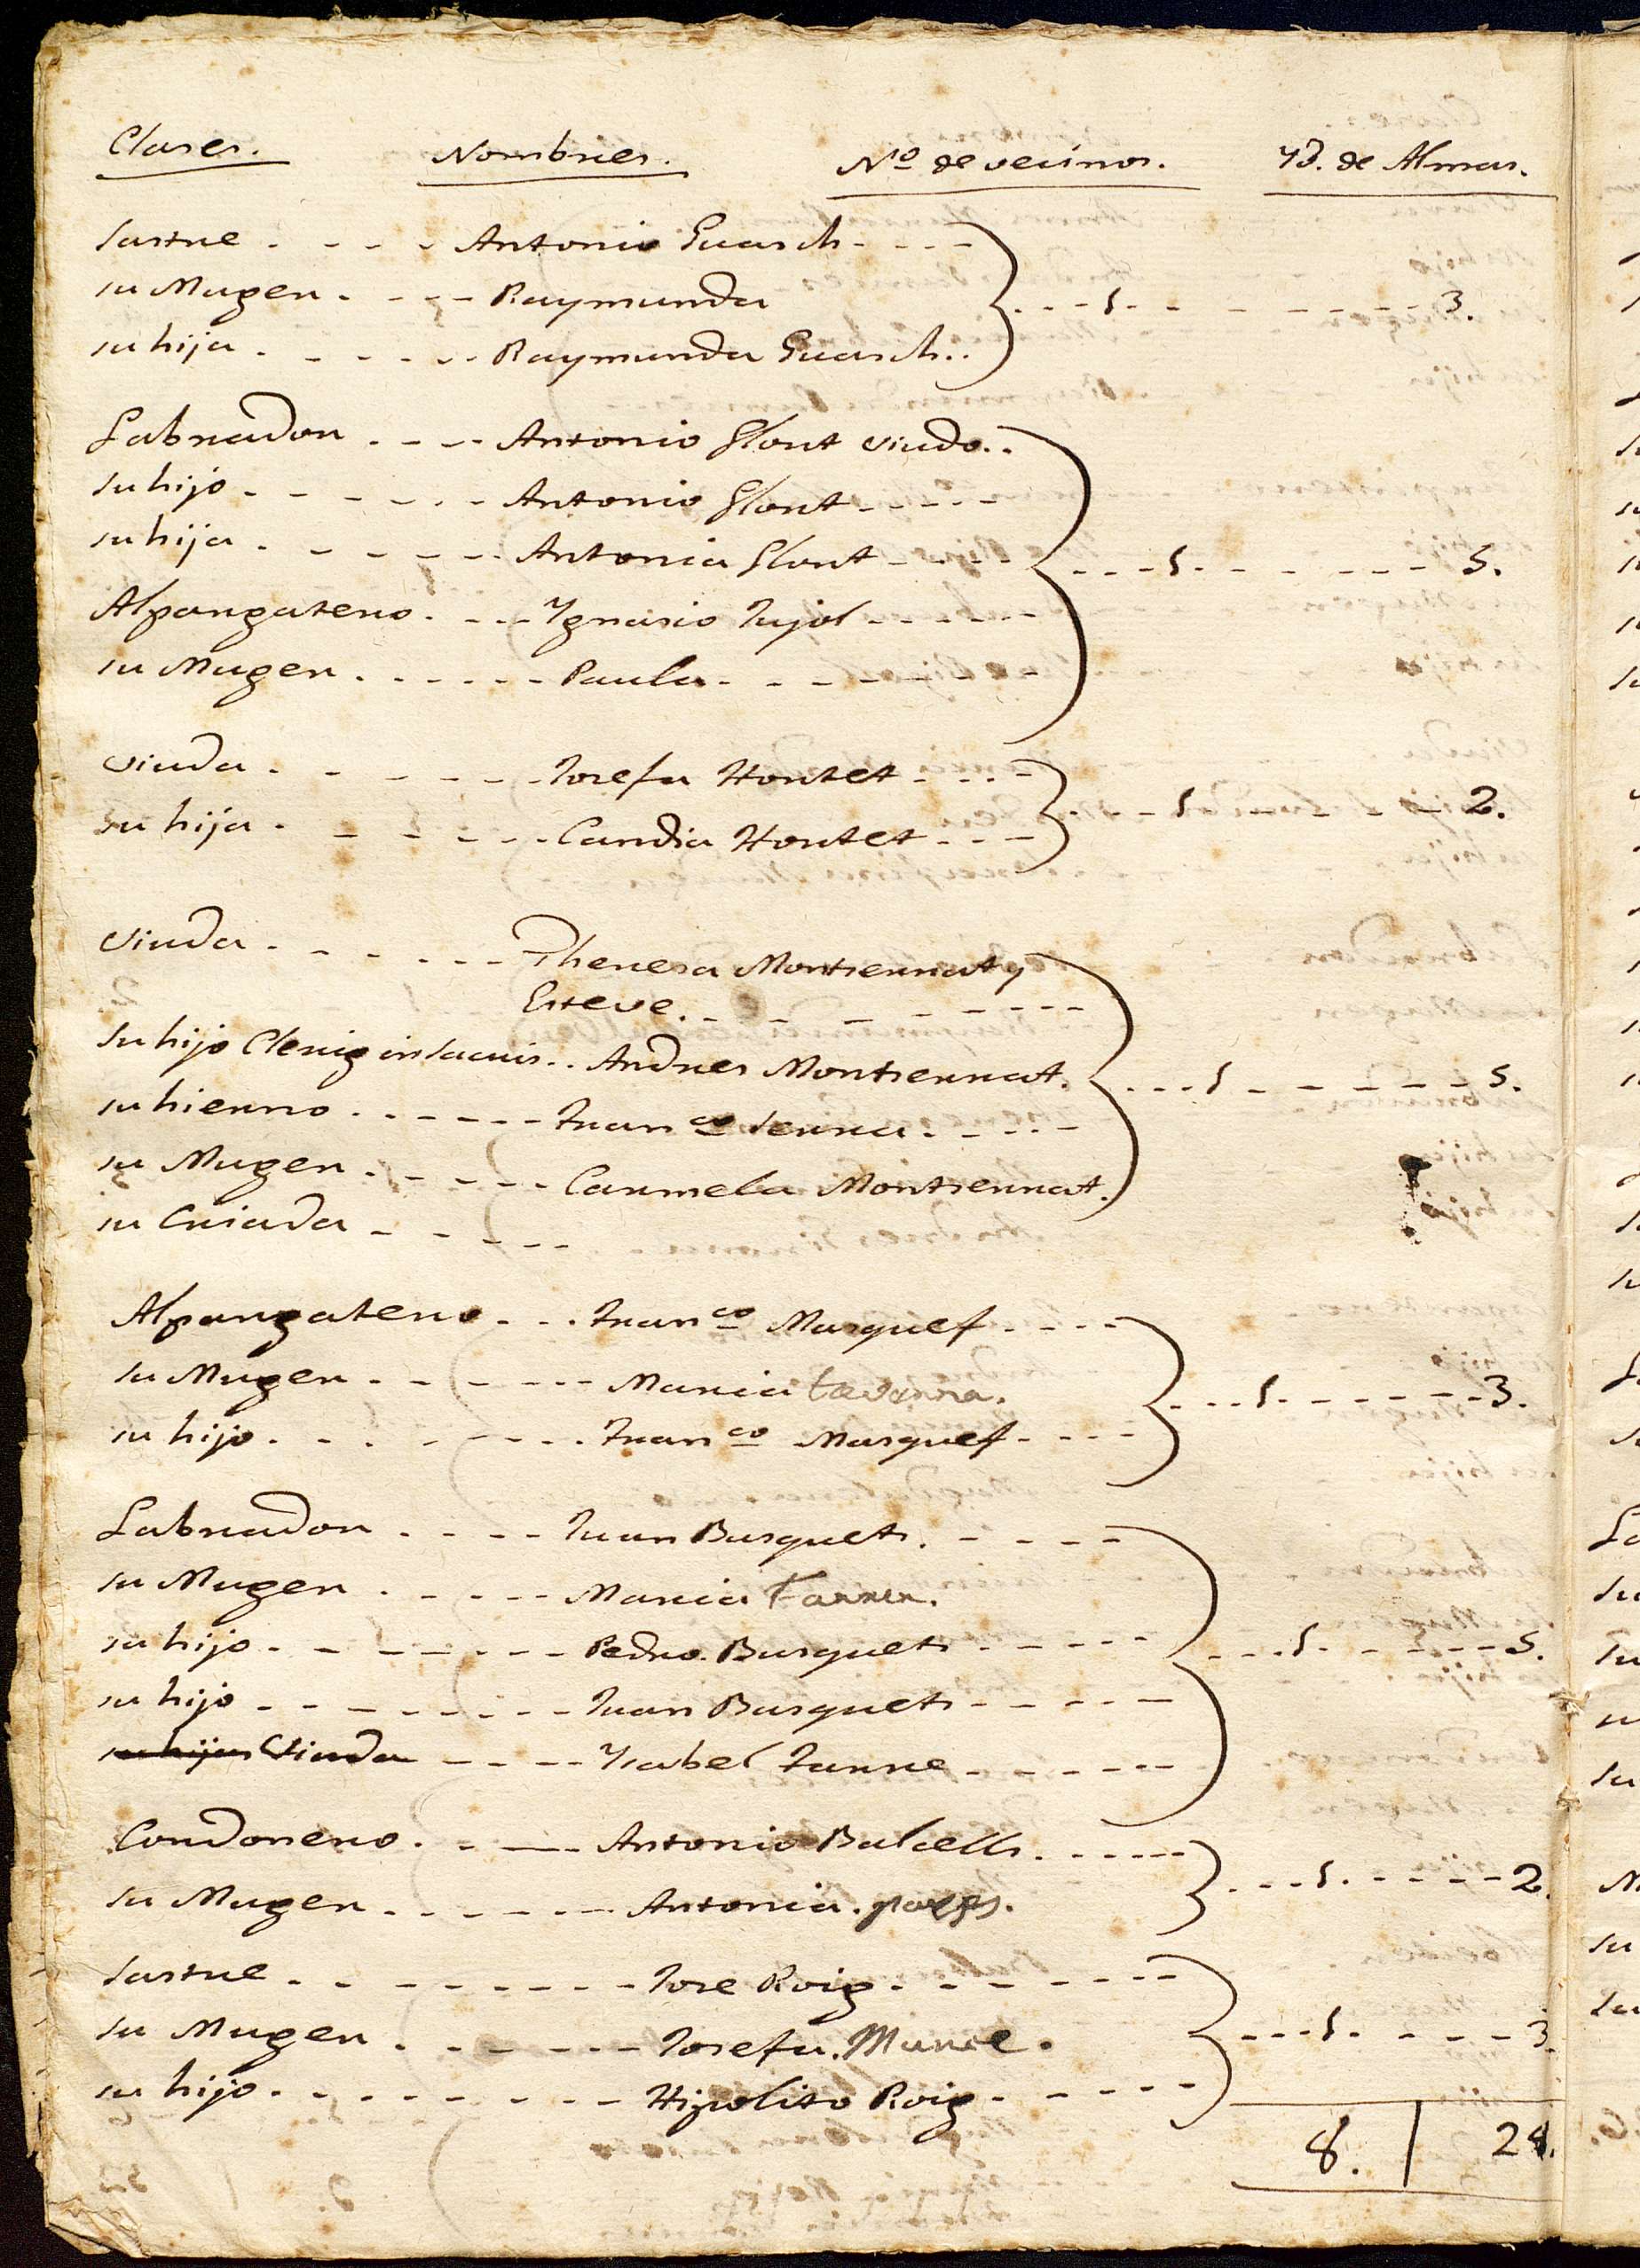 Clases. Nombres. Nº de vecinos. Yd. de Almas.
Sastre - - - - Antonio Guasch - - - -
su Muger - - - - Raymunda - - - 1 - - - - - - 3.
su hija - - - - - Raymunda Guasch..
Labrador - - - - Antonio Llort viudo..
su hijo - - - - - - Antonio Llort - - - - -
su hija - - - - - - Antonia Llort - - - - - - - 1 - - - - - - 5.
Alpargatero - - - - Ygnasio Pujol - - - - - -
su Muger - - - - - - Paula - - - - - -
viuda - - - - - - Josefa Hortet - - - -
su hija - - - - - - Candia Hortet - - - - - - 1 - - - - - - 2.
viuda - - - - - - Theresa Montserrat y
Esteve. - - - - - - -
su hijo Clerig in sacris.. Andres Montserrat. - - - 1 - - - - - - 5.
su hierno - - - - - - Franco Serra - - - - -
su Muger - - - - - Carmela Montserrat.
su Criada - - - - -
Alpargatero - - - Franco Marquef - - - -
su Muger - - - - - - Maria - - - 1 - - - - - - 3.
su hijo - - - - - - Franco Marquef - - - -
Labrador - - - - Juan Busquets. - - - -
su Muger - - - - - Maria Farrer.
su hijo - - - - - - - Pedro Busquets - - - - - - - - 1 - - - - - - 5.
su hijo - - - - - - - Juan Busquets - - - - -
su hija Viuda - - - - Ysabel Farrre - - - - - -
Cordonero - - - Antonio Balcells - - - - -
su Muger - - - - - - Antonia. - - - 1 - - - - - 2.
Sastre - - - - - - - - Jose Roig - - - - - - -
su Muger - - - - - - Josefa. - - - 1 - - - - 3.
su hijo - - - - - - - - Hipolito Roig - - - - -
8. 28.